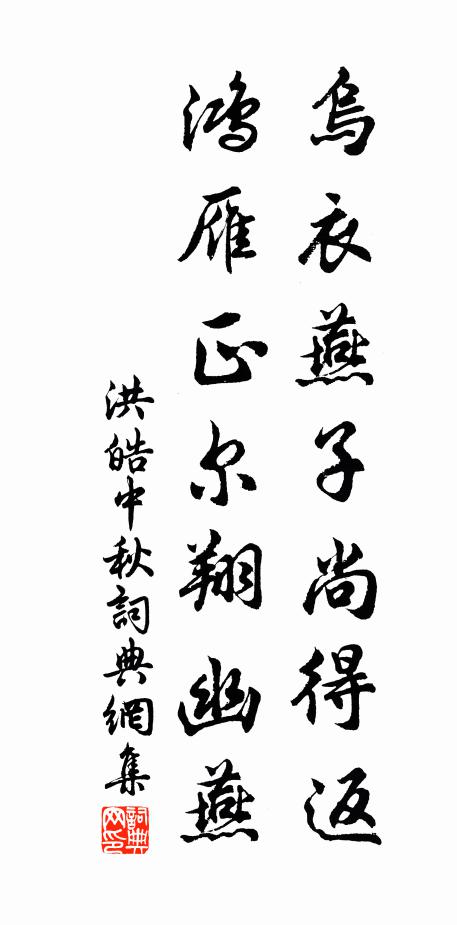 烏衣燕子尚得返
鴻雁正尔翔幽燕
洪皓中秋詞典網集
詞典網印